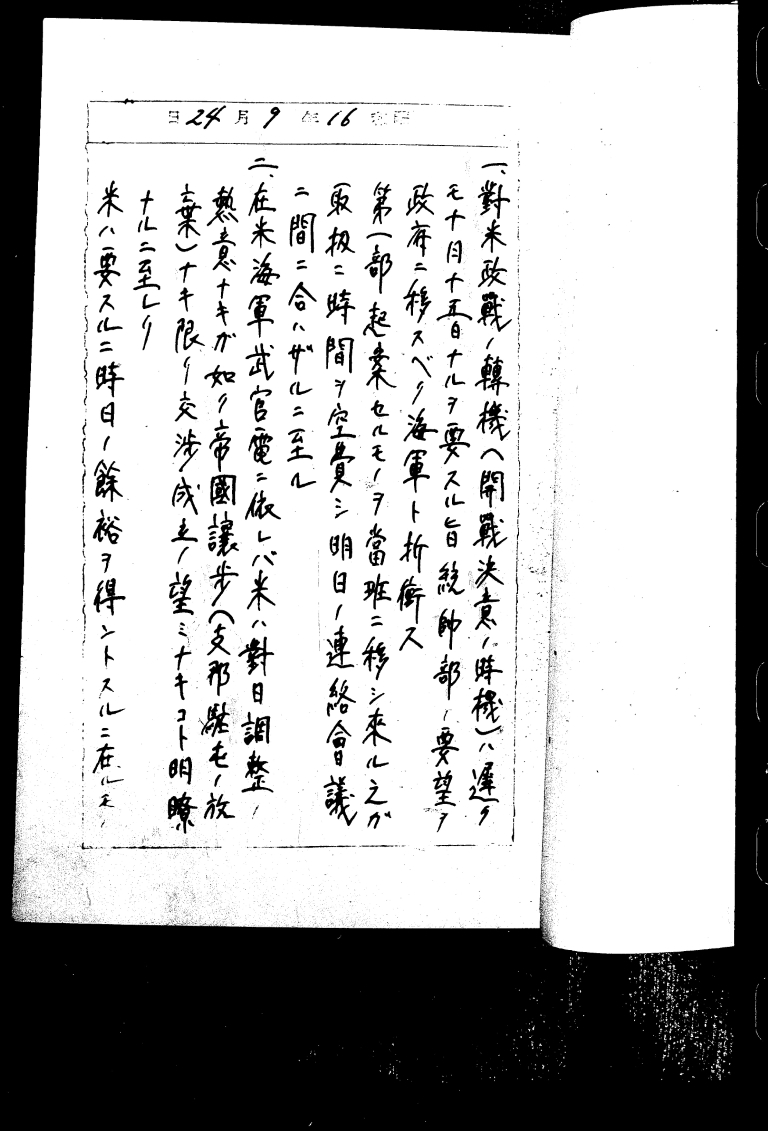 昭和16年9月24日
一、對米政戰ノ轉機(開戰決意ノ時機)ハ遲ク
モ十月十五日ナルヲ要スル旨統帥部ノ要望ヲ
政府ニ移スベク海軍ト折衝ス
第一部起案セルモノヲ當班ニ移シ來ル之ガ
取扱ニ時間ヲ空費シ明日ノ連絡會議
ニ間ニ合ハザルニ至ル
二、在米海軍武官電ニ依レバ米ハ對日調整ノ
熱意ナキガ如ク帝國讓歩(支那駐屯ノ放
棄)ナキ限リ交渉成立ノ望ミナキコト明瞭
ナルニ至レリ
米ハ要スルニ時日ノ餘裕ヲ得ントスルニ在ルモノ